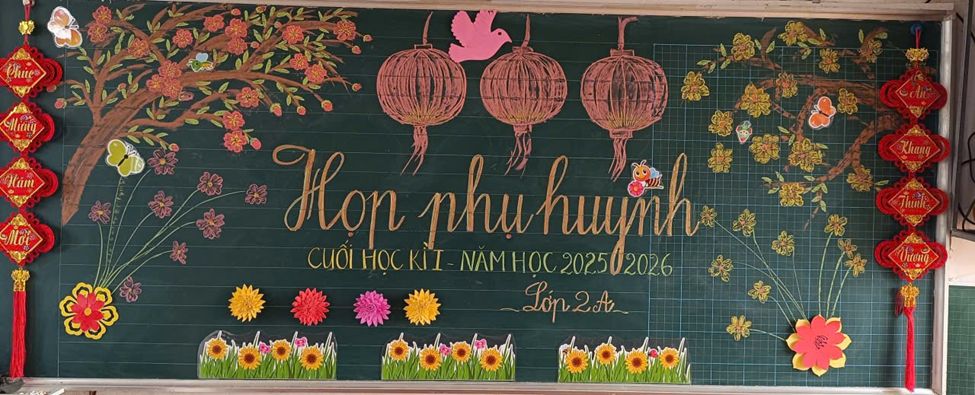 Chúc
Mừng
Năm
Mới
Họp phụ huynh
CUỐI HỌC KÌ I - NĂM HỌC 2025 2026
Lớp 2A
An
Khang
Thịnh
Vượng